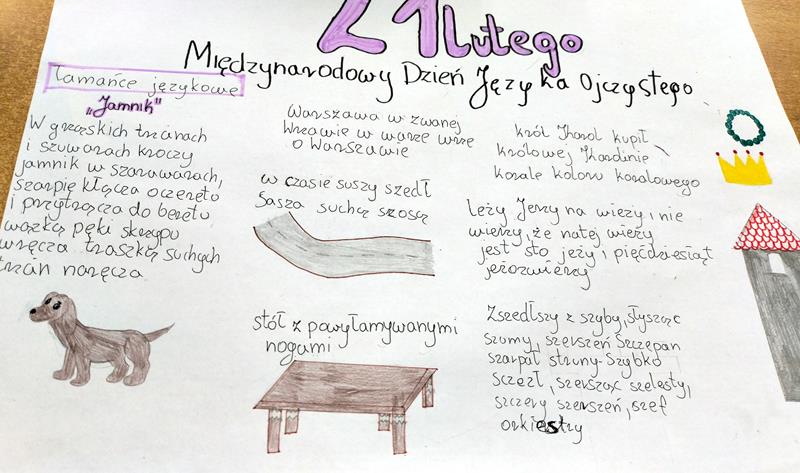 21 Lutego
Międzynarodowy Dzień Języka Ojczystego
Łamańce językowe
"Jamnik"
W grząskich trzcinach
i szuwarach kroczy
jamnik w szarawarach,
szarpie kłącza oczeretu
i przytracza do beretu
ważką pęki skrzypu
wręcza traszką suchych
trzcin naręcza
Warszawa w zwanej
Wrzawie w warze wrze
o Warszawie
w czasie suszy szedł
Sasza suchą szosą
stół z powyłamywanymi
nogami
król Karol kupił
królowej Karolinie
korale koloru koralowego
Leży Jerzy na wieży i nie
wierzy, że na tej wieży
jest sto jeży i pięćdziesiąt
jeżozwierzy
Zszedłszy z szyby, słysząc
szumy, szerszeń Szczepan
szarpał struny. Szybko
sczezł, szerząc szelesty,
szczery szerszeń, szef
orkiestry